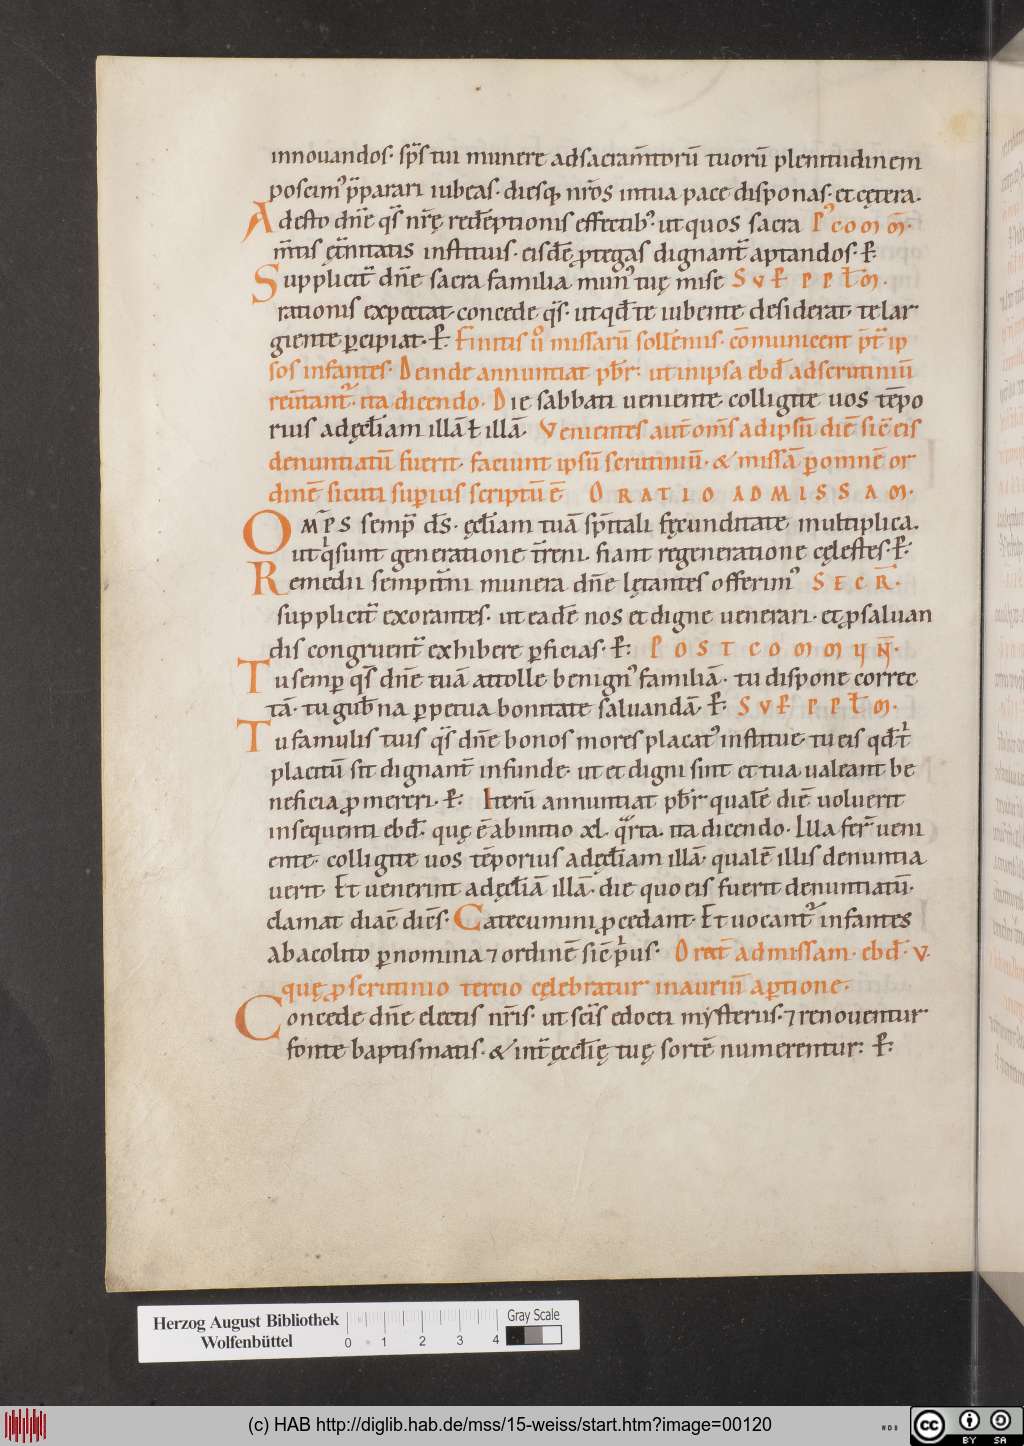 innouandos· sp̄s tui munere ad sacram̄torū tuorū plenitudinem
poscim᾽ p̄parari iubeas· diesq; nr̄os in tua pace disponas· et cętera.
Adesto dn̄e qs̄ nr̄ę redēptionis effectib᾽· ut quos sacra P᾽ COMM̄·
m̄tis ęt̄nitatis instituis· eisdē ꝓtegas dignant̄ aptandos· P·
Supplicit̄ dn̄e sacra familia mun᾽ tuę mise SUP PPL̄M·
rationis expectat· concede qs̄· ut qd̄ te iubente desiderat· te lar
giente ꝑcipiat· P· Finitis ū missarū sollēnis· cōmunicent p̄t ip
sos infantes· Deinde annuntiat pbr̄· ut in ipsa ebd̄ ad scrutiniū
reūtant᾽· ita dicendo· Die sabbati ueniente· colligite uos tēpo
rius ad ęcl̄iam illā ł illā· Venientes aut̄ om̄s ad ipsū diē sic̄ eis
denuntiatū fuerit· faciunt ipsū scrutiniū· & missā ꝑ omnē or
dinē sicuti superius scriptū ē ORATIO AD MISSAM·
OMP̄S semp̄ ds̄· ęcl̄iam tuā sp̄itali fęcunditate multiplica.
ut qi sunt generatione t̄reni· fiant regeneratione cęlestes· P·
Remedii sempit̄ni munera dn̄e lętantes offerim᾽ SECR̄·
supplicit̄ exorantes· ut eadē nos et digne uenerari· et ꝓ saluan
dis congruent̄ exhibere ꝑficias· P: POSTCOMMUN̄·
Tu semꝑ qs̄ dn̄e tuā attolle benign᾽ familiā· tu dispone correc
tā· tu gub̄na ꝑpetua bonitate saluandā· P· SUP PPL̄M·
Tu famulis tuis qs̄ dn̄e bonos mores placat᾽ institue· tu eis qd̄ ti
placitū sit dignant̄ infunde· ut et digni sint et tua ualeant be
neficia ꝓmereri· P· Iterū annuntiat pbr̄ qualē diē uoluerit
in sequenti ebd̄· quę ē ab initio xl· q̄rta· ita dicendo· Illa fer̄ ueni
ente· colligite uos tēporius ad ęcl̄iam illā· qualē illis denuntia
uerit· Et uenerint ad ęcl̄iā illā· die quo eis fuerit denuntiatū·
clamat diac̄ dic̄s· Catecumini ꝓcedant· Et uocant᾽ infantes
ab acolito ꝑ nomina ⁊ ordinē sic̄ pi᾽us· Orat̄ ad missam· ebd̄· v·
quę ꝓ scrutinio tercio cęlebratur in auriū aꝑtione·
Concede dn̄e electis nr̄is· ut sc̄is edocti mysteriis· ⁊ renouentur
fonte baptismatis· & int̄ ęccl̄ię tuę sortē numerentur: P·
Herzog August Bibliothek
Wolfenbüttel
0 1 2 3 4
Gray Scale
(c) HAB http://diglib.hab.de/mss/15-weiss/start.htm?image=00120
WDB
cc BY SA